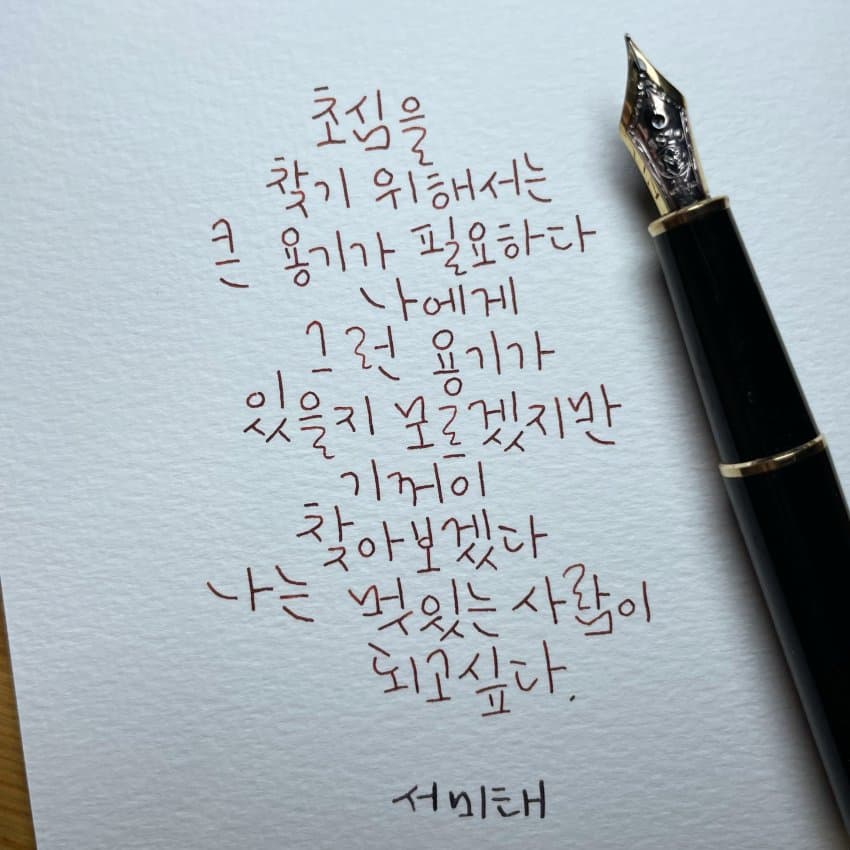 초심을
찾기 위해서는
큰 용기가 필요하다
나에게
그런 용기가
있을지 모를겠지만
기꺼이
찾아보겠다
나는 멋있는 사람이
되고싶다.
서미태